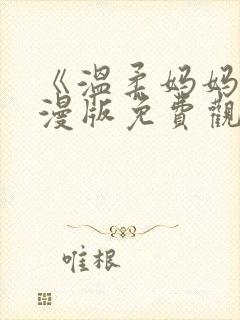 《溫柔妈妈
漫版免費觀
唯根